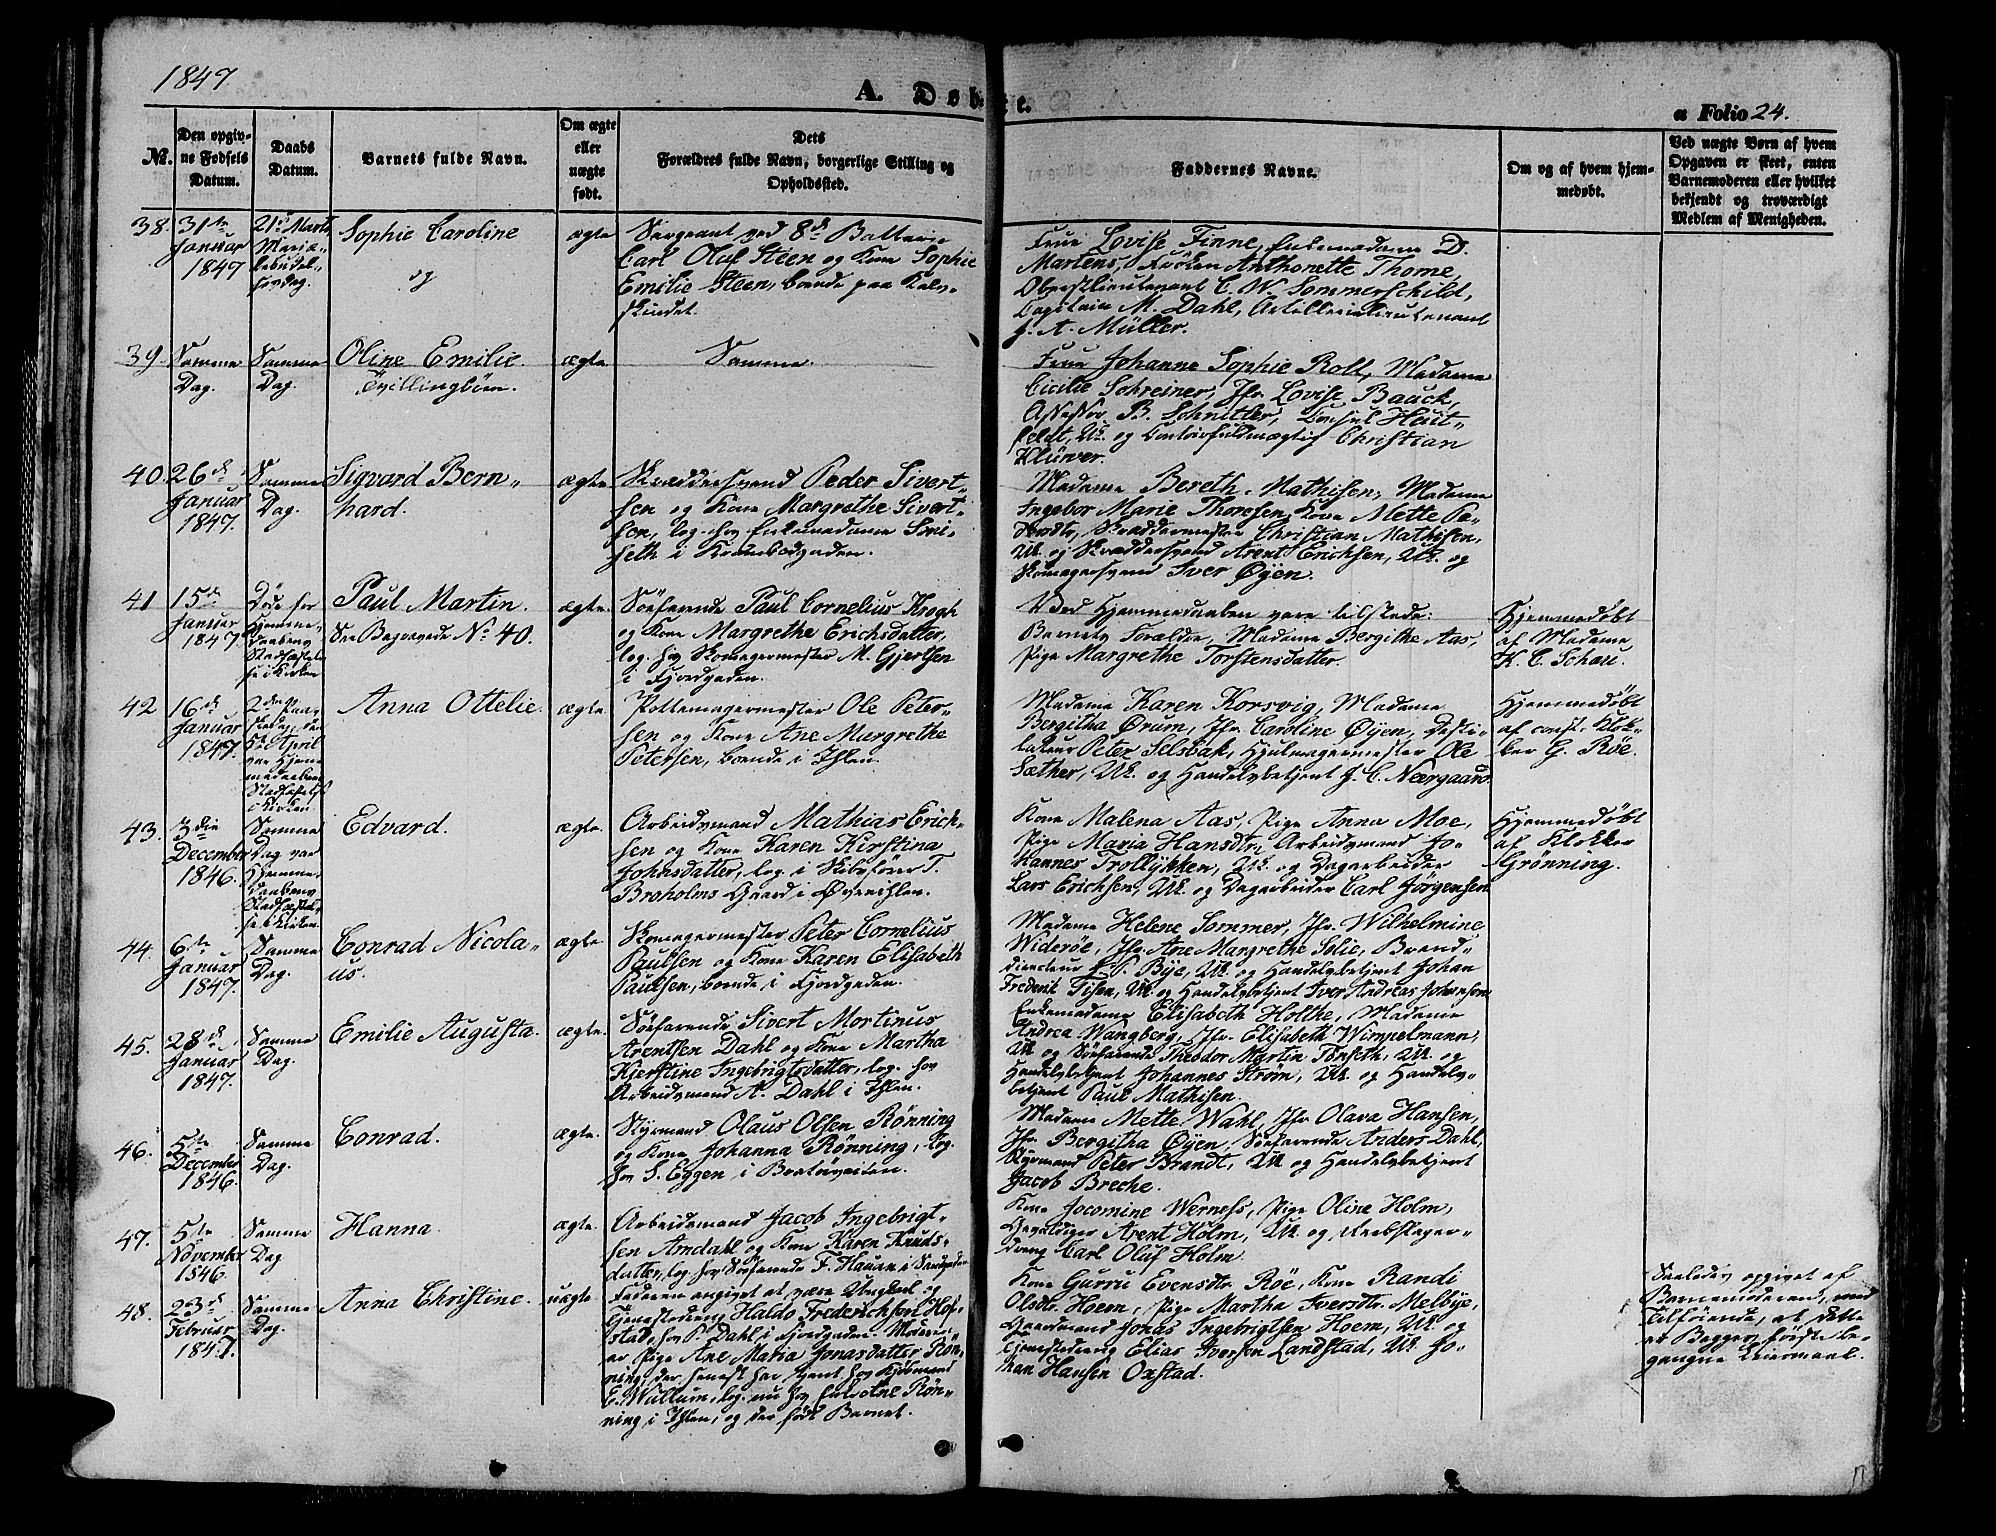 1847.
A. Døbte.
a Folio 24.
No.
Den opgiv-
ne Fødsels
Datum.
Daabs
Datum.
Barnets fulde Navn.
Om ægte
eller
uægte
født.
Dets
Forældres fulde Navn, borgerlige Stilling og
Opholdssted.
Faddernes Navne.
Om og af hvem hjem-
medøbt.
Ved uægte Børn af hvem
Opgaven er skeet, enten
Barnemoderen eller hvilket
bekjendt og troværdigt
Medlem af Menigheden.
38.
31te
Januar
1847
21de Marts
Mariæ
bebudel-
sesdag.
Sophie Caroline
og
ægte
Sergeant ved 8de Batteri
Carl Oluf Steen og Kone Sophie
Emilie Steen, boende paa Kalv-
skindet.
Frue Lovise Finne, Enkemadame D.
Martens, Frøken Anthonette Thome,
Oberstlieutenant C. W. Sommerschild,
Capitain M. Dahl, Artillerielieutenant
J. A. Müller.
39.
Samme
Dag.
Samme
Dag.
Oline Emilie.
Tvillingbørn.
ægte
Samme.
Frue Johanne Sophie Roll, Madame
Cicilie Schreiner, Jfr. Lovise Bauck,
Assessor B. Schnitler, Consul Huit-
feldt, Uk. og Contoirfuldmægtig Christian
Klüwer.
40.
26de
Januar
1847.
Samme
Dag.
Sigvard Bern-
hard.
ægte
Skræddersvend Peder Sivert-
sen og Kone Margrethe Sivert-
sen, log. hos Enkemadame Smi-
seth i
Madame Bereth Mathisen, Madame
Ingebor Marie Thoresen, Kone Mette Pe-
dersdtr, Skræddermester Christian Mathisen,
Uk. og Skræddersvend Arent Erichsen, Uk. og
Skomagersvend Iver Øyen.
41
15de
Januar
1847.
Døde før
Hjemme-
daabens
Stadfæstel-
se i Kirken
Paul Martin.
See Bagvedg No. 40.
ægte.
Søefarende Paul Cornelius Krogh
og Kone Margrethe Erichsdatter,
log. hos Skomagermester M. Gjertsen
i Fjordgaden.
Ved Hjemmedaaben vare tilstede:
Barnets Forældre, Madame Bergithe Aas,
Pige Margrethe Torstensdatter.
Hjemmedøbt
af Madame
K. C. Schau.
42
16de
Januar
1847.
2den Paa-
skedag, den
5te April
var Hjem-
medaabens
Stadfæstelse
i Kirken.
Anna Ottelie.
ægte.
Pottemagermester Ole Peter-
sen og Kone Ane Margrethe
Petersen, boende i Ihlen.
Madame Karen Korsvig, Madame
Bergitha Ørum, Jfr. Caroline Øyen, Desti-
lateur Peter Selsbak, Hjulmagermester Ole
Sæther, Uk. og Handelsbetjent J. C. Neergaard.
Hjemmedøbt
af const. Klok-
ker G. Röe.
43.
3die
December
1846.
Samme
Dag var
Hjemme-
daabens
Stadfæstel-
se i Kirken.
Edvard.
ægte.
Arbeidsmand Mathias Erich-
sen og Kone Karen Kirstina
Johnsdatter, log. i Skibsfører T.
Broholms Gaard i Øvreihlen.
Kone Malena Aas, Pige Anna Moe,
Pige Maria Hansdtr, Arbeidsmand Jo-
hannes Trollykken, Uk. og Dagarbeider
Lars Erichsen, Uk. og Dagarbeider Carl Jörgensen
Hjemmedøbt
af Klokker
Grønning.
44.
6te
Januar
1847.
Samme
Dag.
Conrad Nicola-
us.
ægte
Skomagermester Peter Cornelius
Paulsen og Kone Karen Elisabeth
Paulsen, boende i Fjordgaden.
Madame Helene Sommer, Jfr. Wilhelmine
Widerøe, Jfr. Ane Margrethe Solie, Brand-
directeur L. P. Bye, Uk. og Handelsbetjent Johan
Frederik Tisen, Uk. og Handelsbetjent Iver Andreas Johansen
45.
28de
Januar
1847.
Samme
Dag.
Emilie Augusta.
ægte.
Søefarende Sivert Mortinus
Arentsen Dahl og Kone Martha
Kjerstine Ingebrigtsdatter, log. hos
Arbeidsmand A. Dahl i Ihlen.
Enkemadame Elisabeth Holtke, Madame
Andrea Wangberg, Jfr. Elisabeth Wimpelmann,
Uk og Søefarende Theodor Martin Tonseth, Uk. og
Handelsbetjent Johannes Strøm, Uk. og Handels-
betjent Paul Mathisen.
46.
5te
December
1846.
Samme
Dag.
Conrad.
ægte.
Styrmand Olaus Olsen Rönning
og Kone Johanna Rönning, log.
hos S. Eggen i Bratörveiten.
Madame Mette Wahl, Jfr. Olava Hansen,
Jfr. Bergitha Øyen, Søefarende Anders Dahl,
Styrmand Peter Brandt, Uk og Handelsbetjent
Jacob Breche.
47.
5te
November
1846.
Samme
Dag
Hanna
ægte.
Arbeidsmand Jacob Ingebrigt-
sen Amdahl og Kone Karen Knuds-
datter, log. hos Søefarende F. Hauan i Sandgaden
Kone Jocomine Werness, Pige Oline Holm,
Arent Holm, Uk. og Reebslager-
dreng Carl Oluf Holm.
48.
23de
Februar
1847.
Samme
Dag.
Anna Christine.
uægte
Faderen angivet at være Ungkarl og
Tjenestedreng Haldo Frederichsen Hof-
stad, hos P. Dahl i Fjordgaden. Moder-
en Pige Ane Maria Jonasdatter Rön-
ning, der senest har tjent hos Kjøbmand
E. Wullum, log. nu hos Enke Ane Rön-
ning i Ihlen, og der født Barnet.
Kone Gurru Evensdtr. Röe, Kone Randi
Olsdtr. Hoem, Pige Martha Iversdtr. Melbye,
Jonas Ingebrigtsen Hoem, Uk. og
Tjenestedreng Elias Iversen Landstad, Uk. Jo-
han Hansen Oxstad.
Saaledes opgivet af
Barnemoderen, med
Tilføiende, at dette
er Begges første be-
gangne Leiermaal.